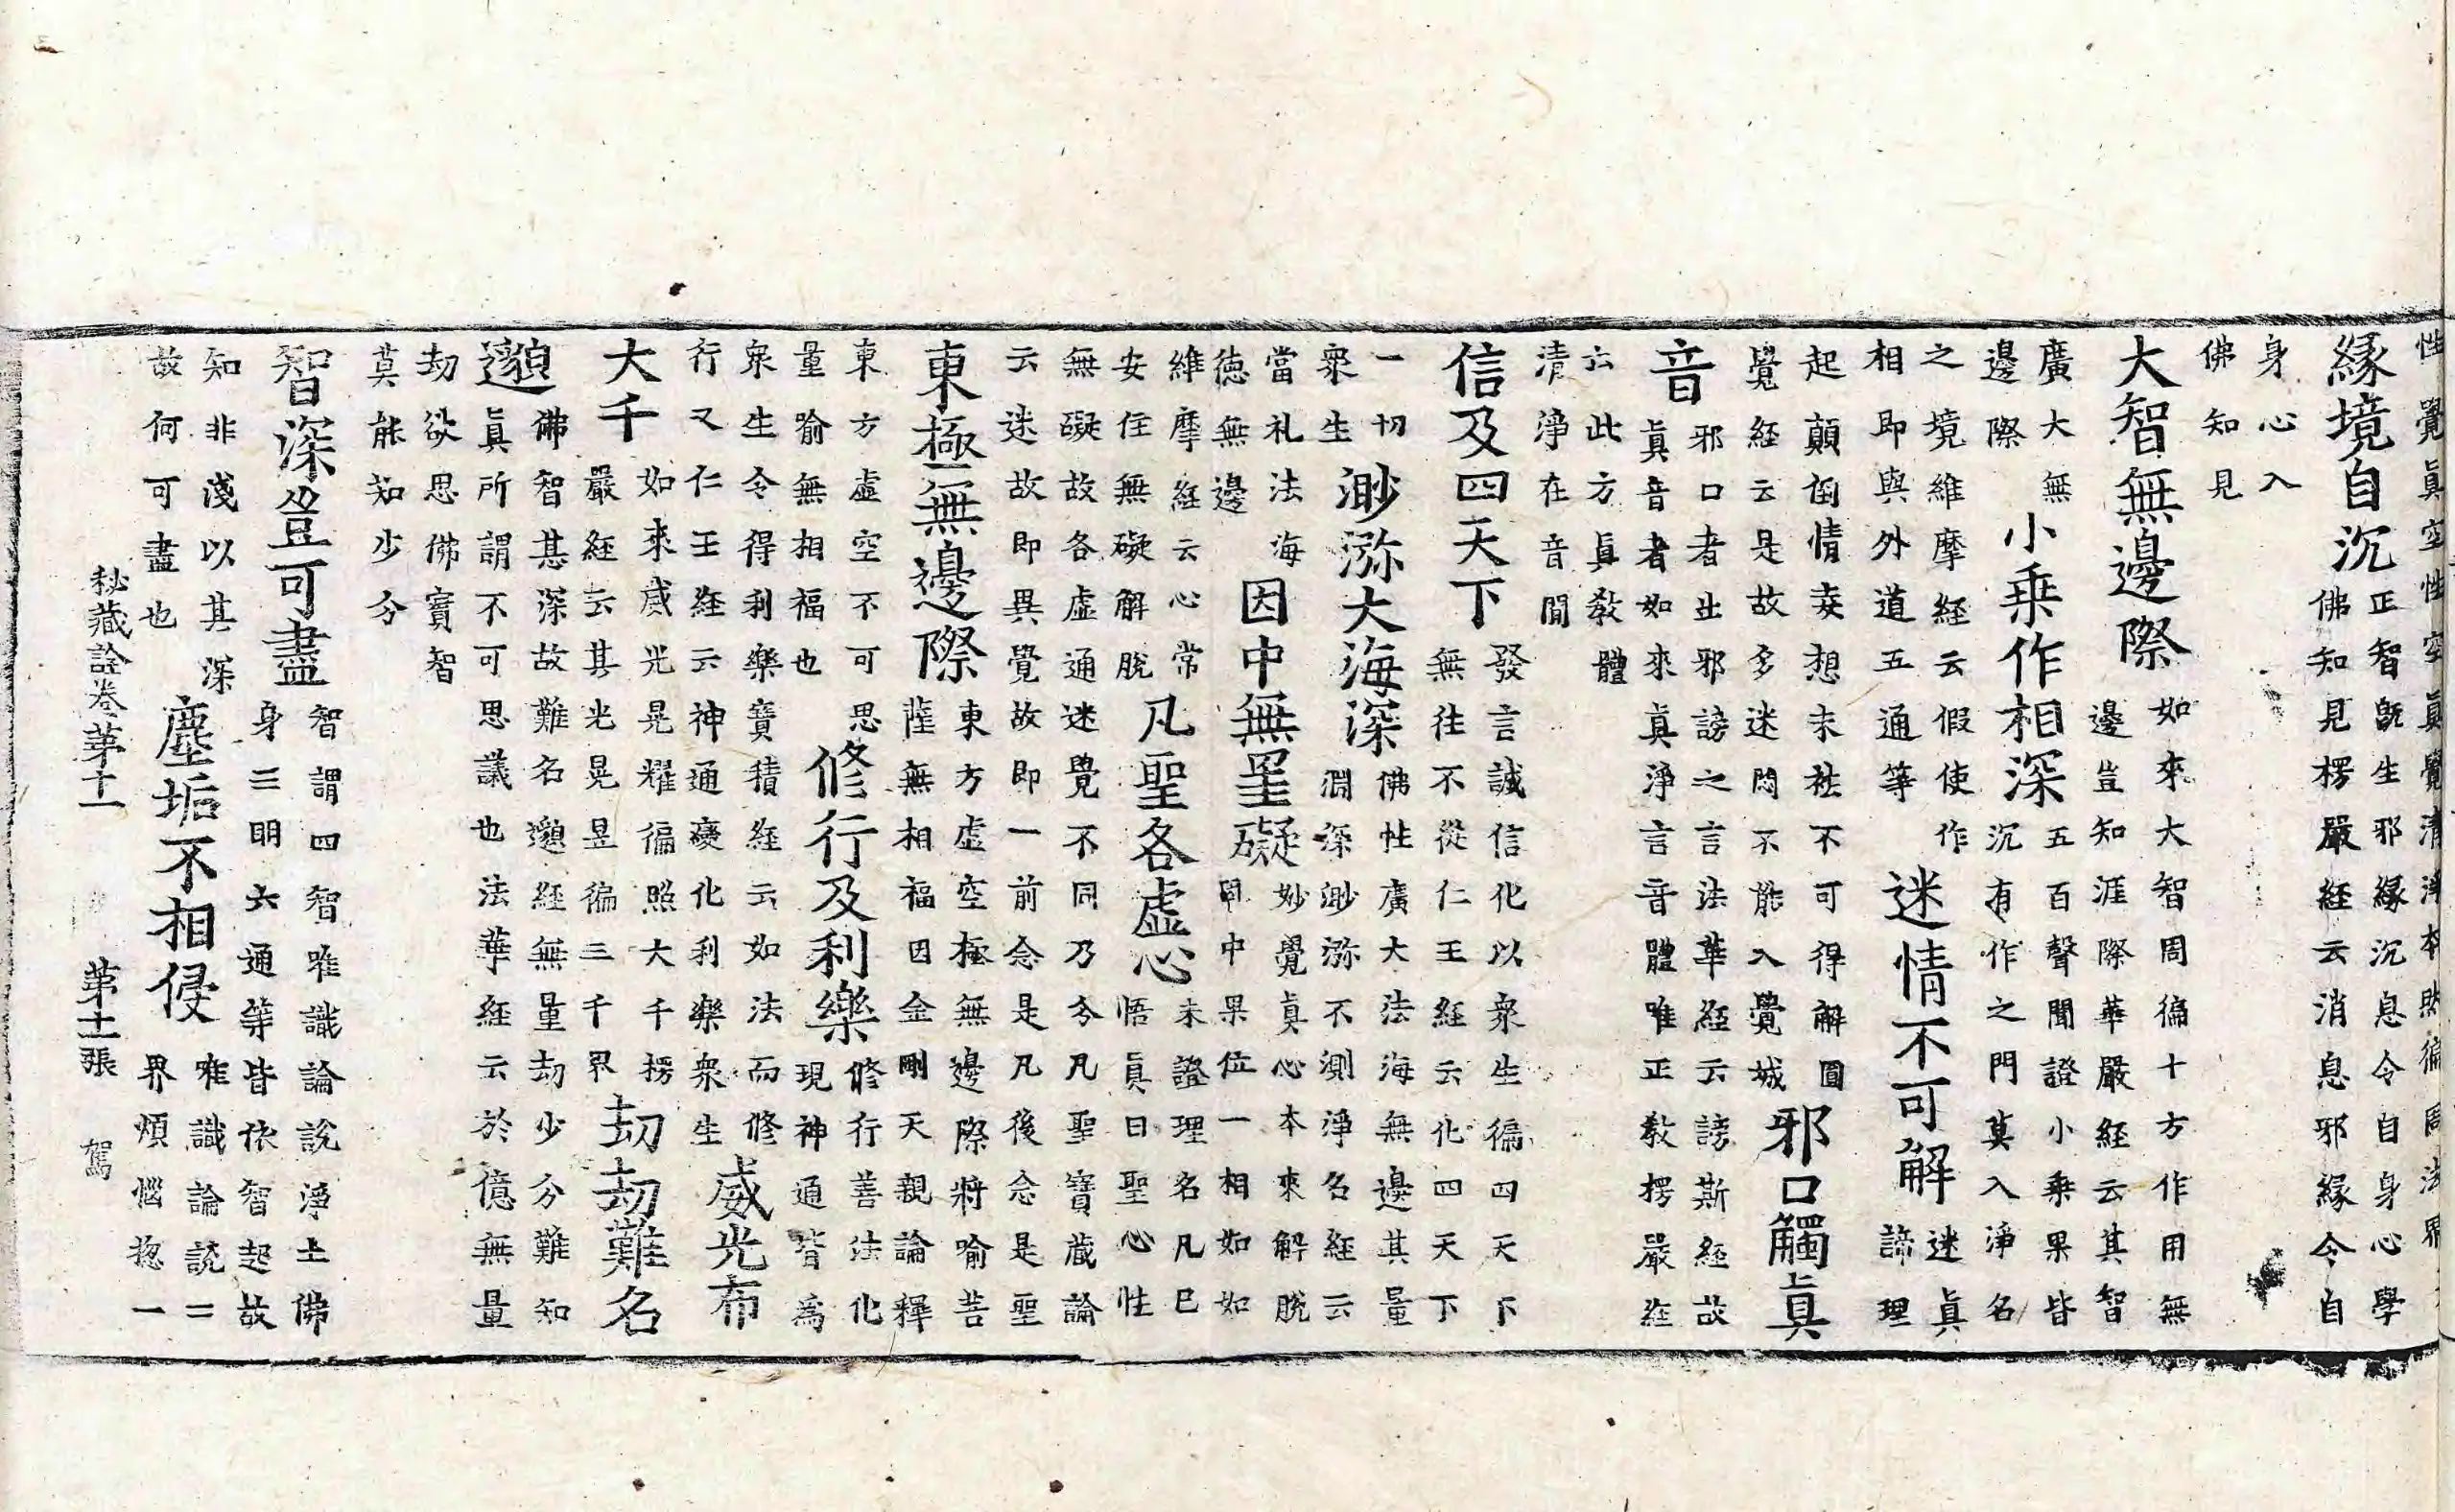 性覺眞空性空眞覺清淨本然徧周法界
緣境自沉
正智旣生邪緣沉息令自身心學
佛知見楞嚴經云消息邪緣令自
身心入
佛知見
大智無邊際
如來大智周徧十方作用無
邊豈知涯際華嚴經云其智
廣大無
邊際
小乗作相深
五百聲聞證小乗果皆
沉有作之門莫入淨名
之境維摩經云假使作
相即與外道五通等
迷情不可解
迷眞
諦理
起顛倒情妄想未袪不可得解圓
覺經云是故多迷悶不能入覺城
邪口觸眞
音
邪口者出邪謗之言法華經云謗斯經故
眞音者如來眞淨言音體唯正敎楞嚴經
云此方眞敎體
清淨在音聞
信及四天下
發言誠信化以衆生徧四天下
無往不從仁王經云化四天下
一切
衆生
渺瀰大海深
佛性廣大法海無邊其量
淵深渺瀰不測淨名經云
當礼法海
德無邊
因中無罣礙
妙覺眞心本來解脫
因中果位一相如如
維摩經云心常
安住無礙解脫
凡聖各虛心
未證理名凡已
悟眞曰聖心性
無礙故各虛通迷覺不同乃分凡聖寶藏論
云迷故即異覺故即一前念是凡後念是聖
東極無邊際
東方虛空極無邊際將喻菩
薩無相福因金剛天親論釋
東方虛空不可思
量喻無相福也
修行及利樂
修行善法化
現神通皆爲
衆生令得利樂寶積經云如法而修
行又仁王經云神通變化利樂衆生
威光布
大千
如來威光晃耀徧照大千楞
嚴經云其光晃昱徧三千界
劫劫難名
邈
佛智甚深故難名邈經無量劫少分難知
眞所謂不可思議也法華經云於億無量
劫欲思佛實智
莫能知少分
智深豈可盡
智謂四智唯識論說淨土佛
身三明六通等皆依智起故
知非淺以其深
故何可盡也
塵垢不相侵
唯識論說二
界煩惱惣一
秘藏詮卷第十一 第十二張 駕